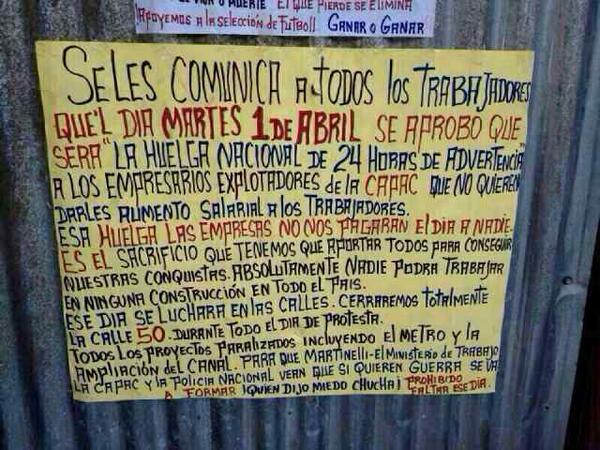 VIDA o MUERTE EL QUE PIERDE SE ELIMINA
APOYEMOS A LA SELECCIÓN DE FUTBOL! GANAR o GANAR
SE LES COMUNICA A TODOS los TRABAJADORES
QUE'L DIA MARTES 1 DE ABRIL SE APROBO QUE
SERA "LA HUELGA NACIONAL DE 24 HORAS DE ADVERTENCIA"
A LOS EMPRESARIOS EXPLOTADORES de la CAPAC QUE NO QUIEREN
DARLES AUMENTO SALARIAL A LOS TRABAJADORES.
ESA HUELGA LAS EMPRESAS NO NOS PAGARAN El DIA A NADIE.
ES EL SACRIFICIO QUE TENEMOS QUE APORTAR TODOS PARA CONSEGUIR
NUESTRAS CONQUISTAS. ABSOLUTAMENTE NADIE PODRA TRABAJAR
EN NINGUNA CONSTRUCCIÓN EN TODO EL PAIS.
ESE DIA SE LUCHARA EN LAS CALLES. CERRAREMOS TOTALMENTE
LA CALLE 50. DURANTE TODO EL DIA DE PROTESTA.
TODOS LOS PROYECTOS PARALIZADOS INCLUYENDO El METRO y lA
AMPLIACIÓN DEL CANAL. PARA QUE MARTINELLI-El MINISTERIO DE TRABAJO
LA CAPAC y lA POLICIA NACIONAL VEAN QUE SI QUIEREN GUERRA SE VA
A FORMAR ¡QUIEN DIJO MIEDO CHUCHA! PROHIBIDO
FALTAR ESE DIA.